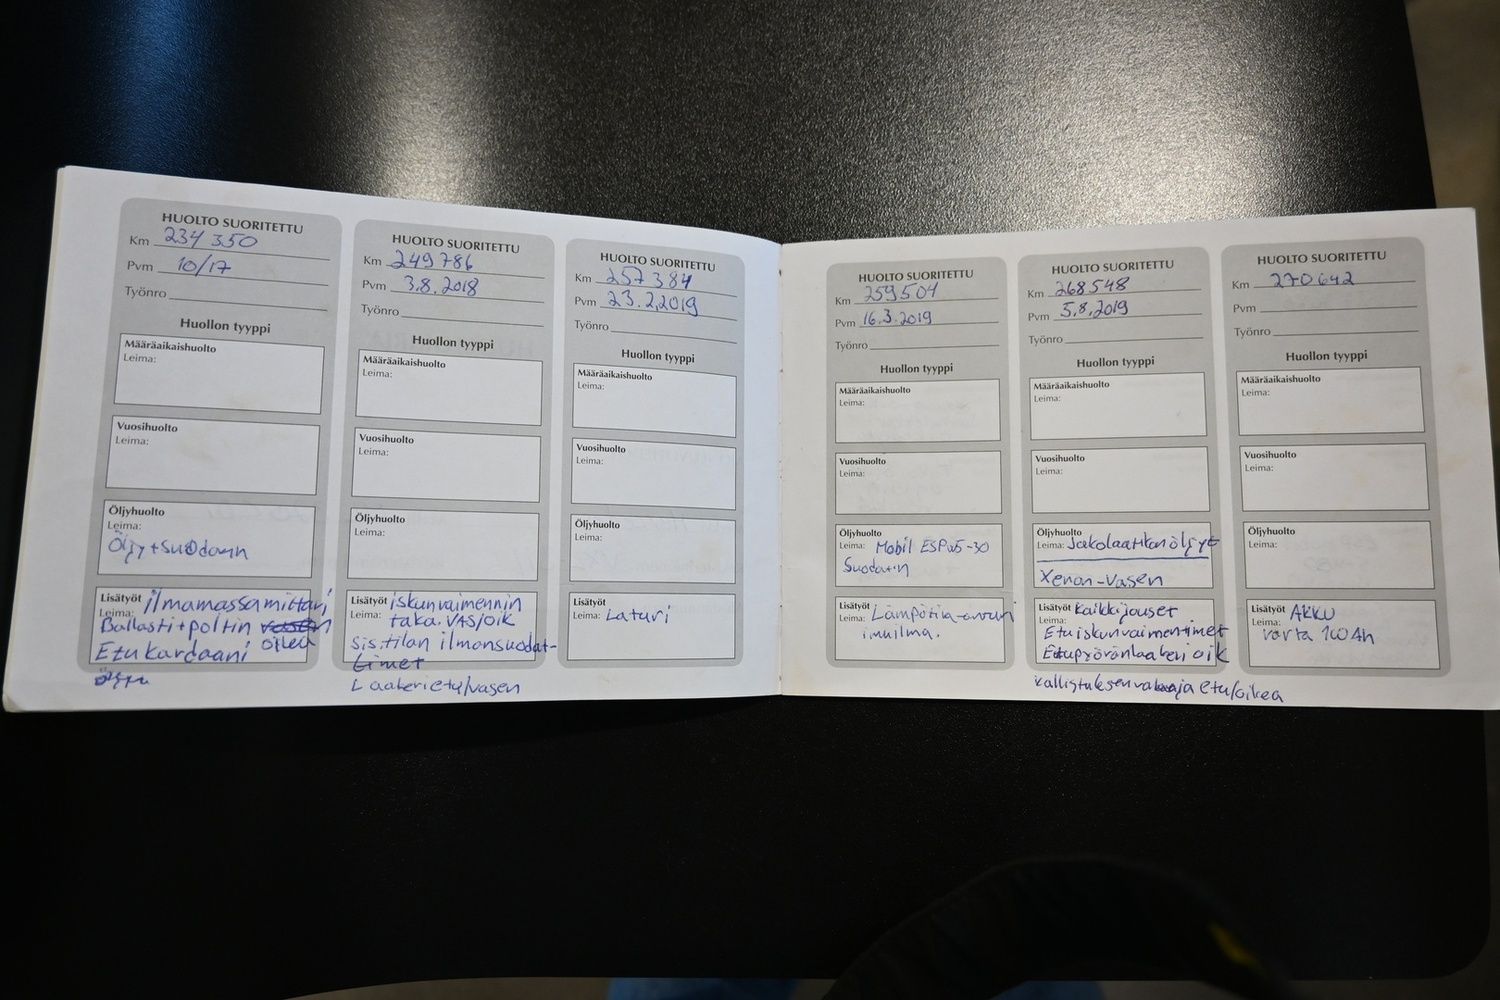 HUOLTO SUORITETTU
Km 234 350
Pvm 10/17
Työnro
Huollon tyyppi
Määräaikaishuolto
Leima:
Vuosihuolto
Leima:
Öljyhuolto
Leima:
Öljy+suodatin
Lisätyöt ilmamassamittari
Leima:
Ballasti+poltin vasen
oikea
Etu kardaani
HUOLTO SUORITETTU
Km 249 786
Pvm 3.8.2018
Työnro
Huollon tyyppi
Määräaikaishuolto
Leima:
Vuosihuolto
Leima:
Öljyhuolto
Leima:
Lisätyöt iskunvaimennin
Leima: taka. VAS/OIK
sis.tilan ilmansuodat-
timet
Laakeri etu/vasen
HUOLTO SUORITETTU
Km 257 384
Pvm 23.2.2019
Työnro
Huollon tyyppi
Määräaikaishuolto
Leima:
Vuosihuolto
Leima:
Öljyhuolto
Leima:
Lisätyöt
Leima: Laturi
HUOLTO SUORITETTU
Km 259504
Pvm 16.3.2019
Työnro
Huollon tyyppi
Määräaikaishuolto
Leima:
Vuosihuolto
Leima:
Öljyhuolto
Leima: Mobil ESP w5-30
Suodatin
Lisätyöt
Leima: Lämpötila-anturi
imuilma.
HUOLTO SUORITETTU
Km 268548
Pvm 5.8.2019
Työnro
Huollon tyyppi
Määräaikaishuolto
Leima:
Vuosihuolto
Leima:
Öljyhuolto
Leima: Jakolaatikon öljyt
Xenon-Vasen
Lisätyöt kaikki jouset
Leima:
Etuiskunvaimentimet
Etupyöränlaakeri oik
kallistuksenvakaaja etu/oikea
HUOLTO SUORITETTU
Km 270642
Pvm
Työnro
Huollon tyyppi
Määräaikaishuolto
Leima:
Vuosihuolto
Leima:
Öljyhuolto
Leima:
Lisätyöt AKKU
Leima: varta 100Ah